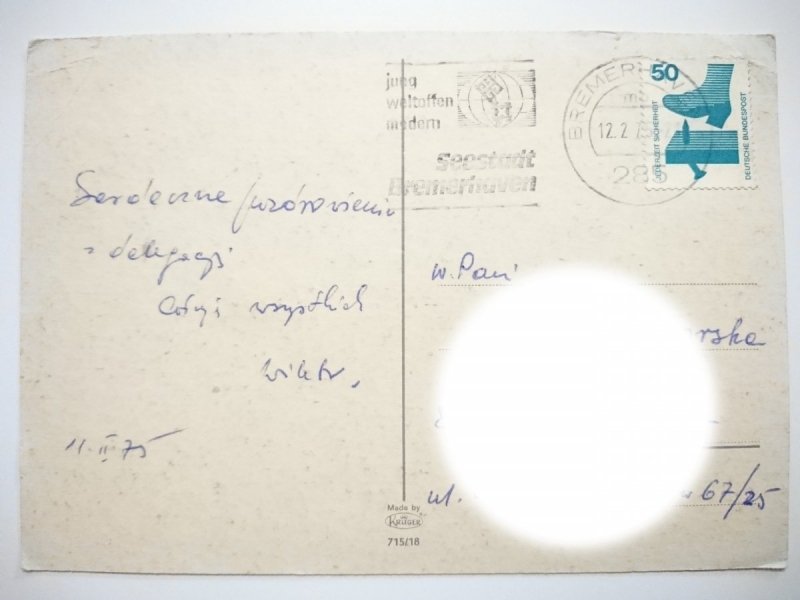 jung
weltoffen
modern
Seestadt
Bremerhaven
BREMERHAVEN
12.2.7
285
50
JEDERZEIT SICHERHEIT
DEUTSCHE BUNDESPOST
Serdeczne pozdrowienia
z delegacji
Całuję wszystkich
Wiktor
11.II.75
W. Pani
rska
ul.
67/25
Made by
KRÜGER
715/18